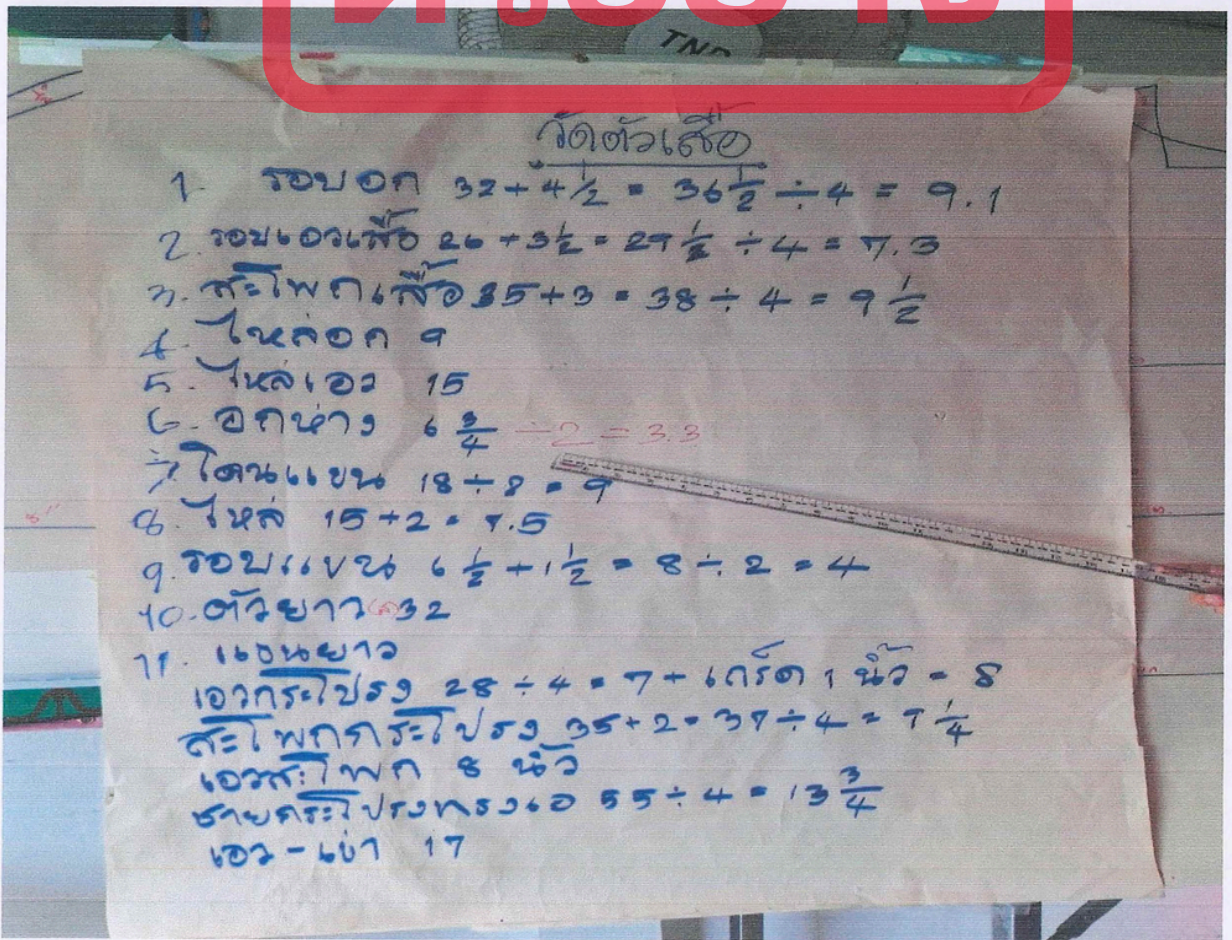 TNP
วัดตัวเสื้อ
1. รอบอก 32 + 4 1/2 = 36 1/2 ÷ 4 = 9.1
2. รอบเอวเสื้อ 26 + 3 1/2 = 29 1/2 ÷ 4 = 7.3
3. สะโพกเสื้อ 35 + 3 = 38 ÷ 4 = 9 1/2
4. ไหล่อก 9
5. ไหล่เอว 15
6. อกห่าง 6 3/4 ÷ 2 = 3.3
7. โคนแขน 18 ÷ 2 = 9
8. ไหล่ 15 ÷ 2 = 7.5
9. รอบแขน 6 1/2 + 1 1/2 = 8 ÷ 2 = 4
10. ตัวยาว 32
11. แขนยาว
เอวกระโปรง 28 ÷ 4 = 7 + เกร็ด 1 นิ้ว = 8
สะโพกกระโปรง 35 + 2 = 37 ÷ 4 = 9 1/4
เอวสะโพก 8 นิ้ว
ชายกระโปรงทรงเอ 55 ÷ 4 = 13 3/4
เอว - เข่า 17